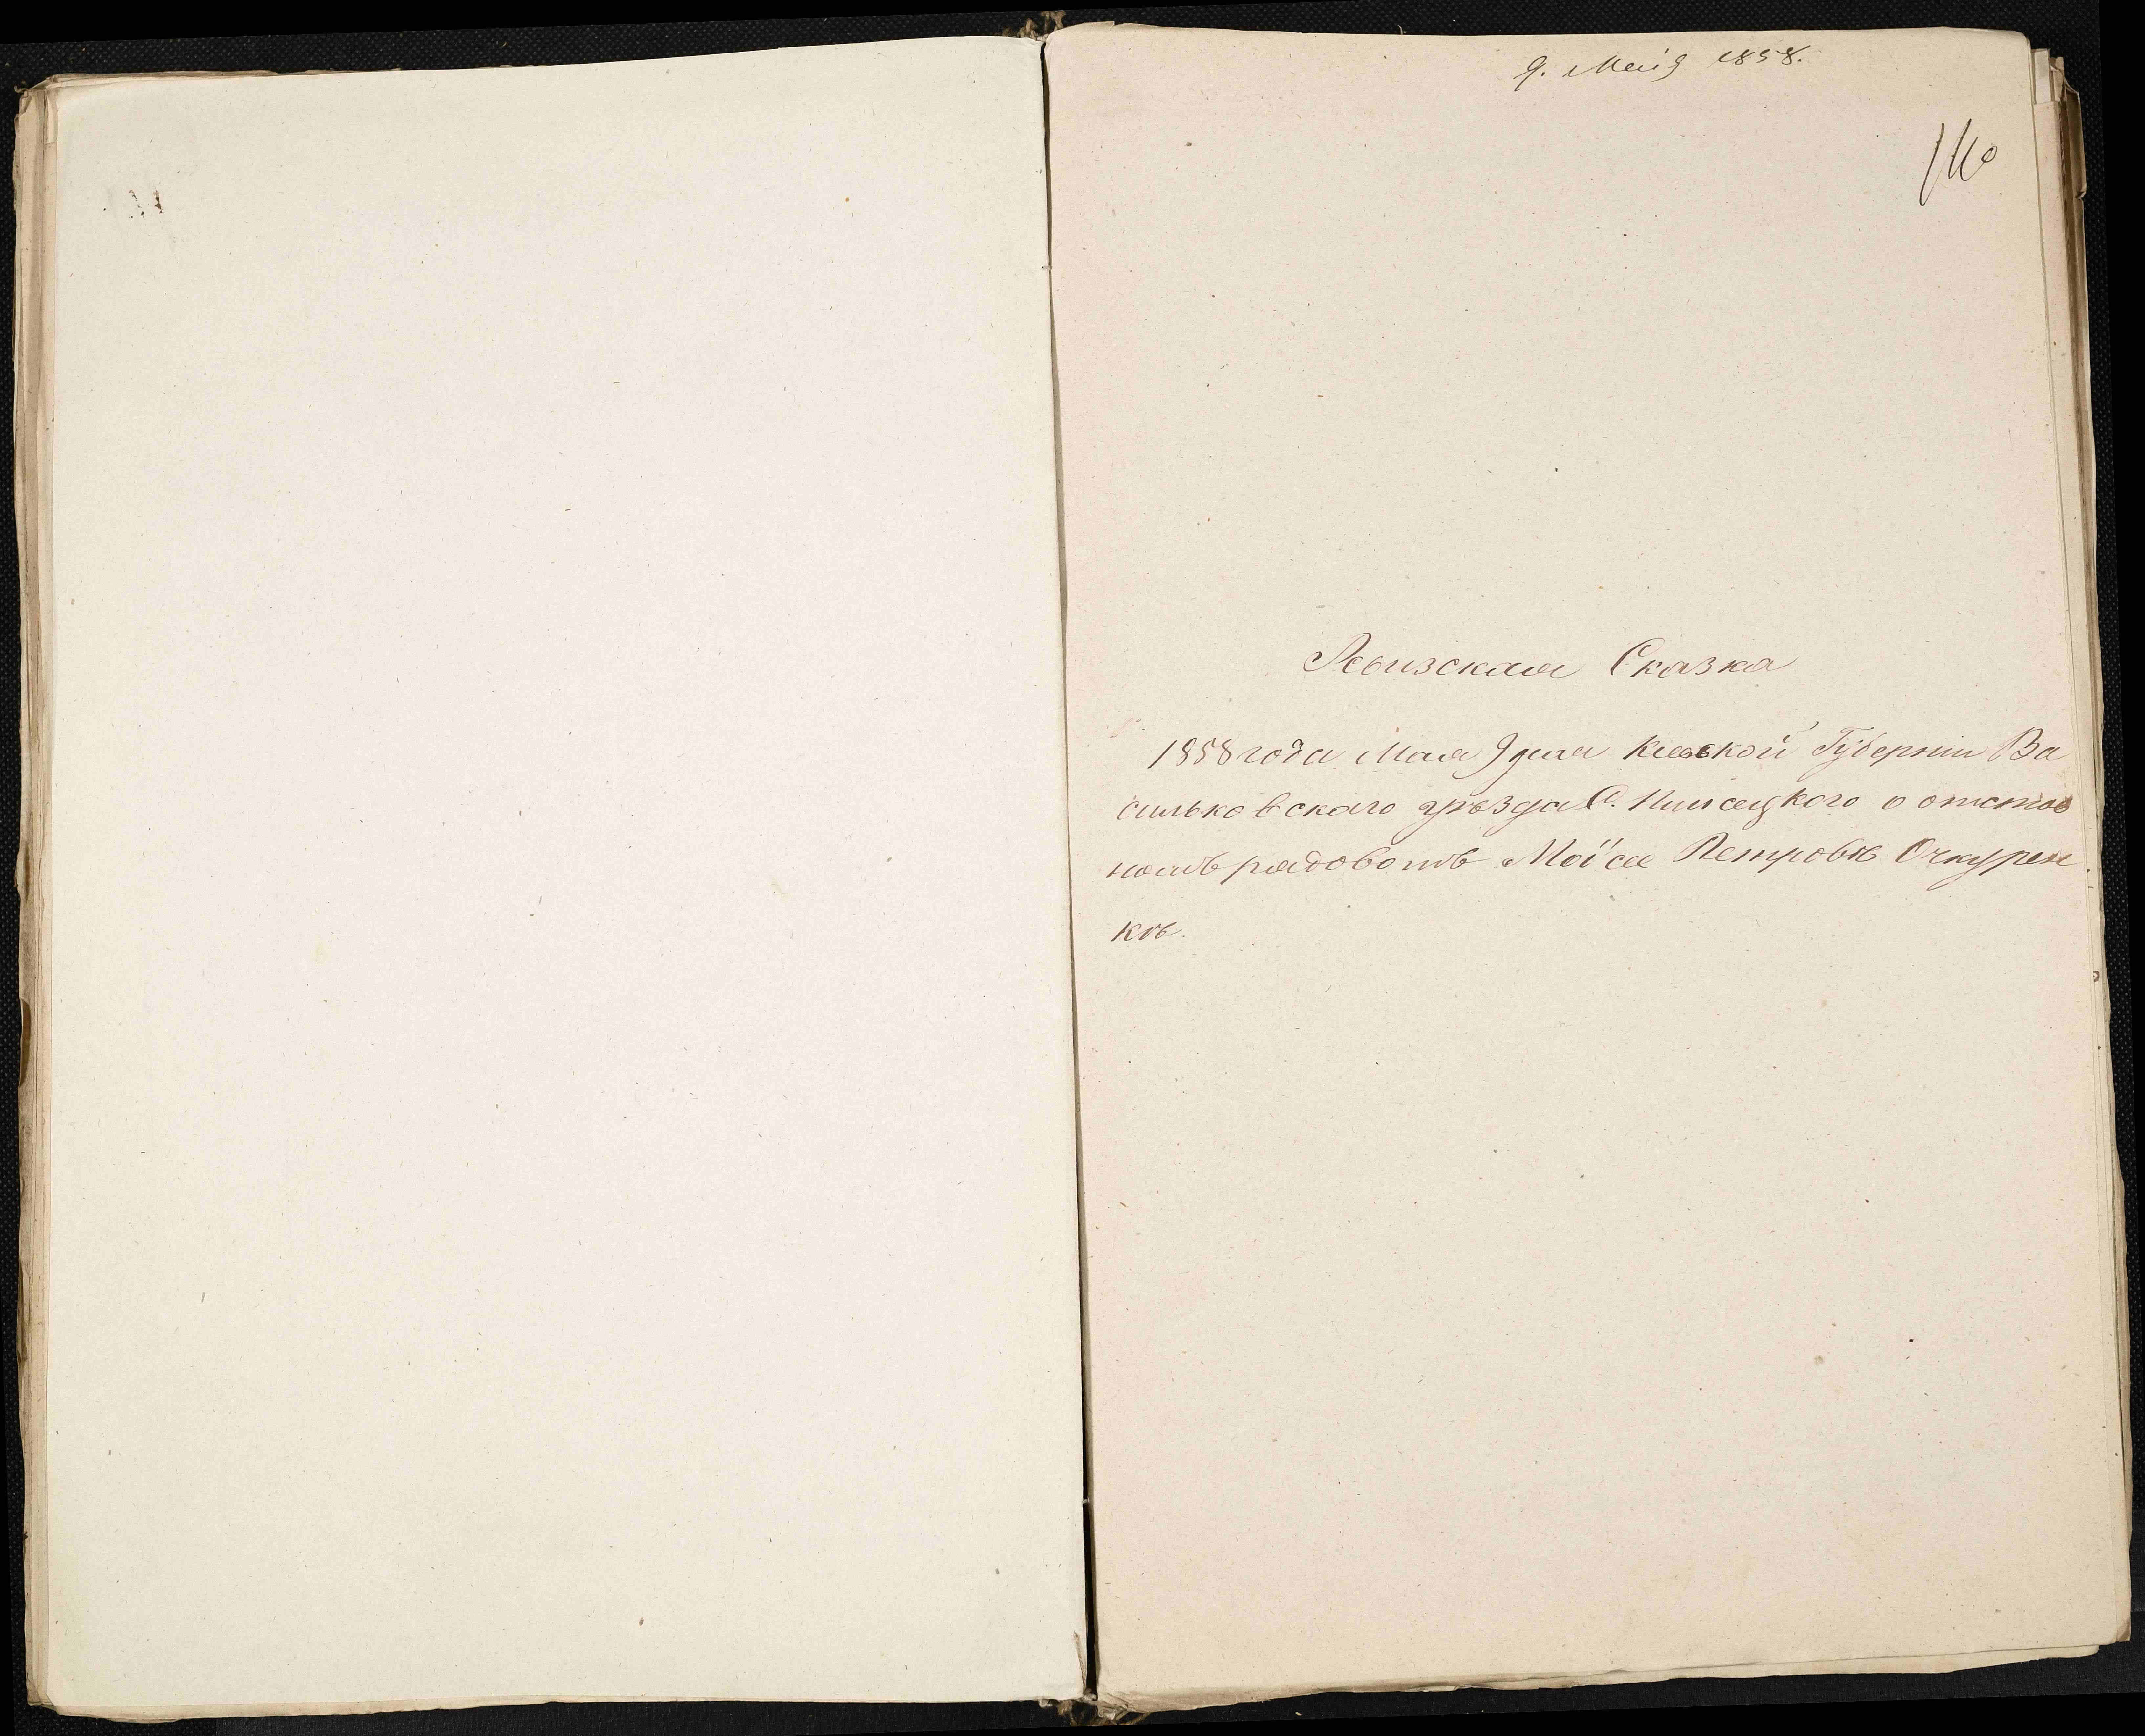 9. Маія 1858.
Ревизская Сказка
1858 года Мая 9 дня Киевской Губерніи Ва
сильковскаго уѣзда С. о отстав
номъ рядовомъ Моѵсее Петровѣ Очкурен
кѣ.